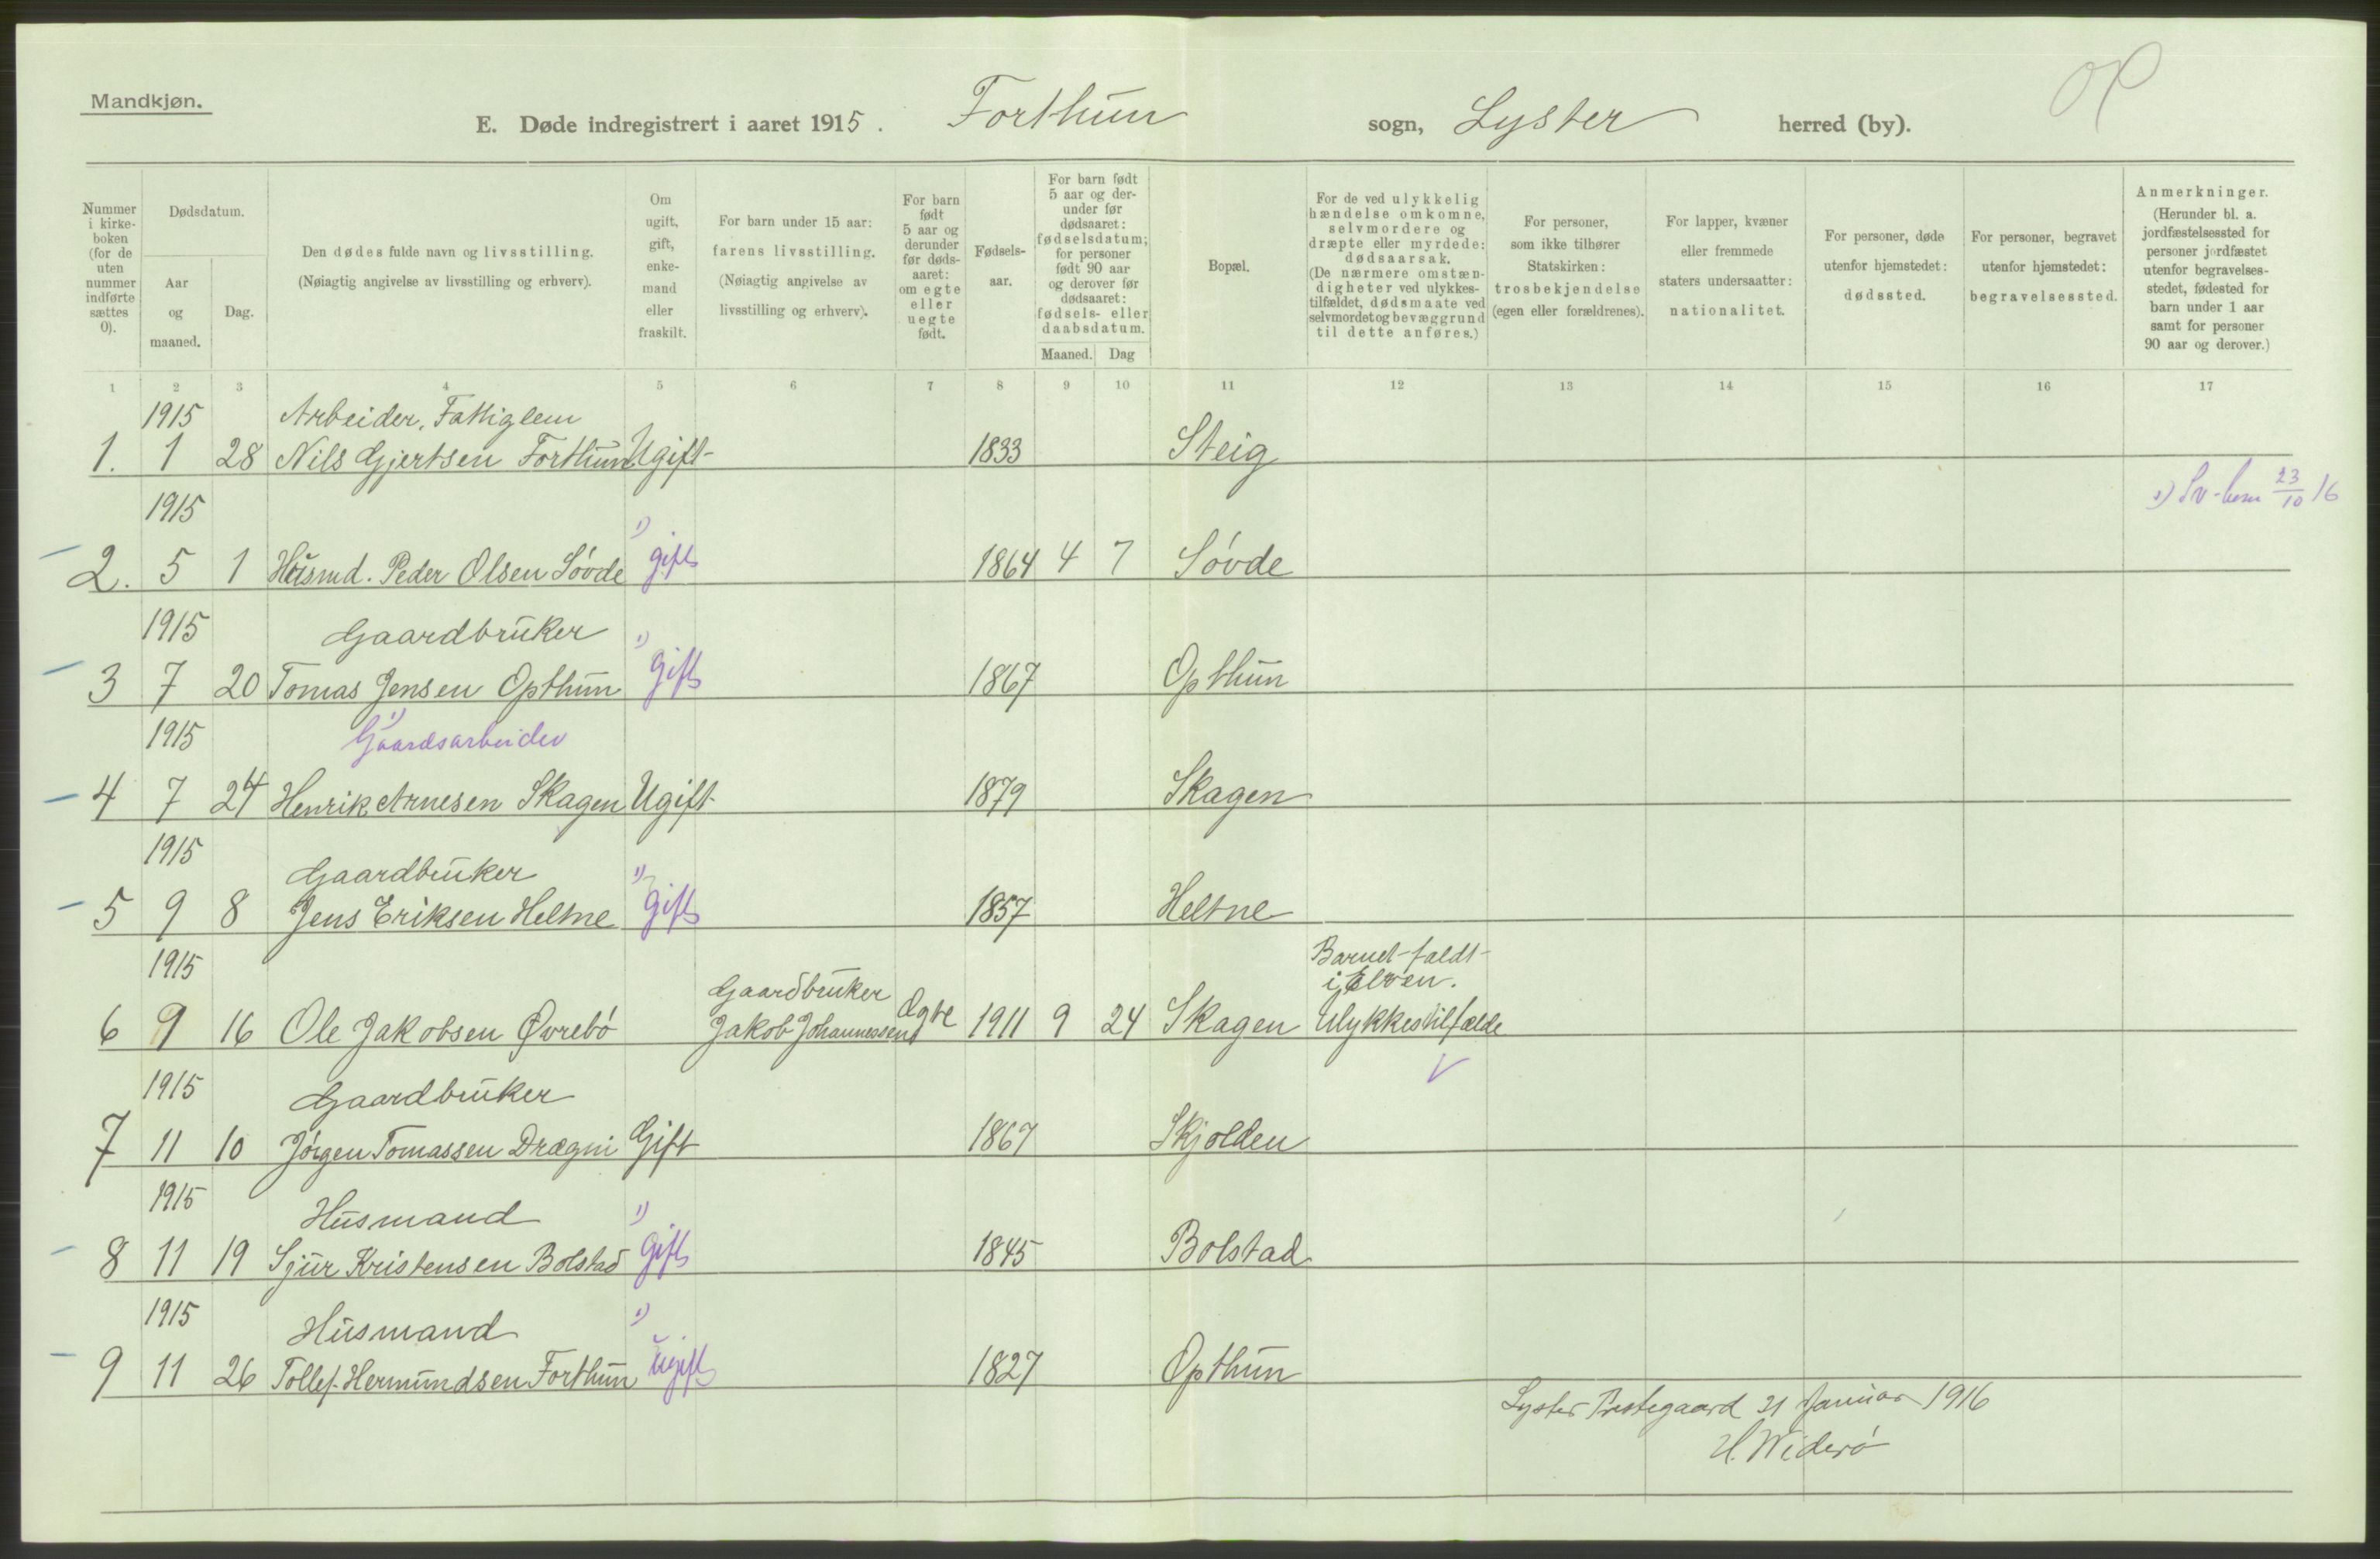 Mandkjøn.
E. Døde indregistrert i aaret 1915. Forthun sogn, Lyster herred (by).
Nummer i kirke-boken (for de uten nummer indførte sættes 0).
Dødsdatum.
Aar og maaned.
Dag.
Den dødes fulde navn og livsstilling.
(Nøiagtig angivelse av livsstilling og erhverv).
Om ugift, gift, enke-mand eller fraskilt.
For barn under 15 aar:
farens livsstilling.
(Nøiagtig angivelse av
livsstilling og erhverv).
For barn født 5 aar og derunder før døds-aaret: om egte eller uegte født.
Fødsels-aar.
For barn født 5 aar og der-under før dødsaaret: fødselsdatum; for personer født 90 aar og derover før dødsaaret: fødsels- eller daabsdatum.
Maaned. Dag
Bopæl.
For de ved ulykkelig hændelse omkomne, selvmordere og dræpte eller myrdede: dødsaarsak. (De nærmere omstæn-digheter ved ulykkes-tilfældet, dødsmaate ved selvmordet og bevæggrund til dette anføres.)
For personer, som ikke tilhører Statskirken: trosbekjendelse (egen eller forældrenes).
For lapper, kvæner eller fremmede staters undersaatter: nationalitet.
For personer, døde utenfor hjemstedet: dødssted.
For personer, begravet utenfor hjemstedet: begravelsessted.
Anmerkninger.
(Herunder bl. a. jordfæstelsessted for personer jordfæstet utenfor begravelses-stedet, fødested for barn under 1 aar samt for personer 90 aar og derover.)
1 2 3 4 5 6 7 8 9 10 11 12 13 14 15 16 17
1915 Arbeider, Fattiglem
1. 1 28 Nils Gjertsen Forthun Ugift 1833 Steig
1) Sv-hem 23/10 16
1915 1)
2. 5 1 Husmd. Peder Olsen Søvde gift 1864 4 7 Søvde
1915 Gaardbruker 1)
3 7 20 Tomas Jensen Opthun Gift 1867 Opthun
1915 1) Gaardsarbeider
4 7 24 Henrik Arnesen Skagen Ugift 1879 Skagen
1915 Gaardbruker 1)
5 9 8 Jens Eriksen Heltne Gift 1857 Heltne
1915 Gaardbruker Barnet faldt i Elven.
6 9 16 Ole Jakobsen Øvrebø Jakob Johannessen Ægte 1911 9 24 Skagen Ulykkestilfælde
1915 Gaardbruker
7 11 10 Jørgen Tomassen Drægni Gift 1867 Skjolden
1915 Husmand 1)
8 11 19 Sjur Kristensen Bolstad Gift 1845 Bolstad
1915 Husmand 1)
9 11 26 Tollef Hermundsen Forthun ugift 1827 Opthun
Lyster Prestegaard 31 Januar 1916
H. Widerø